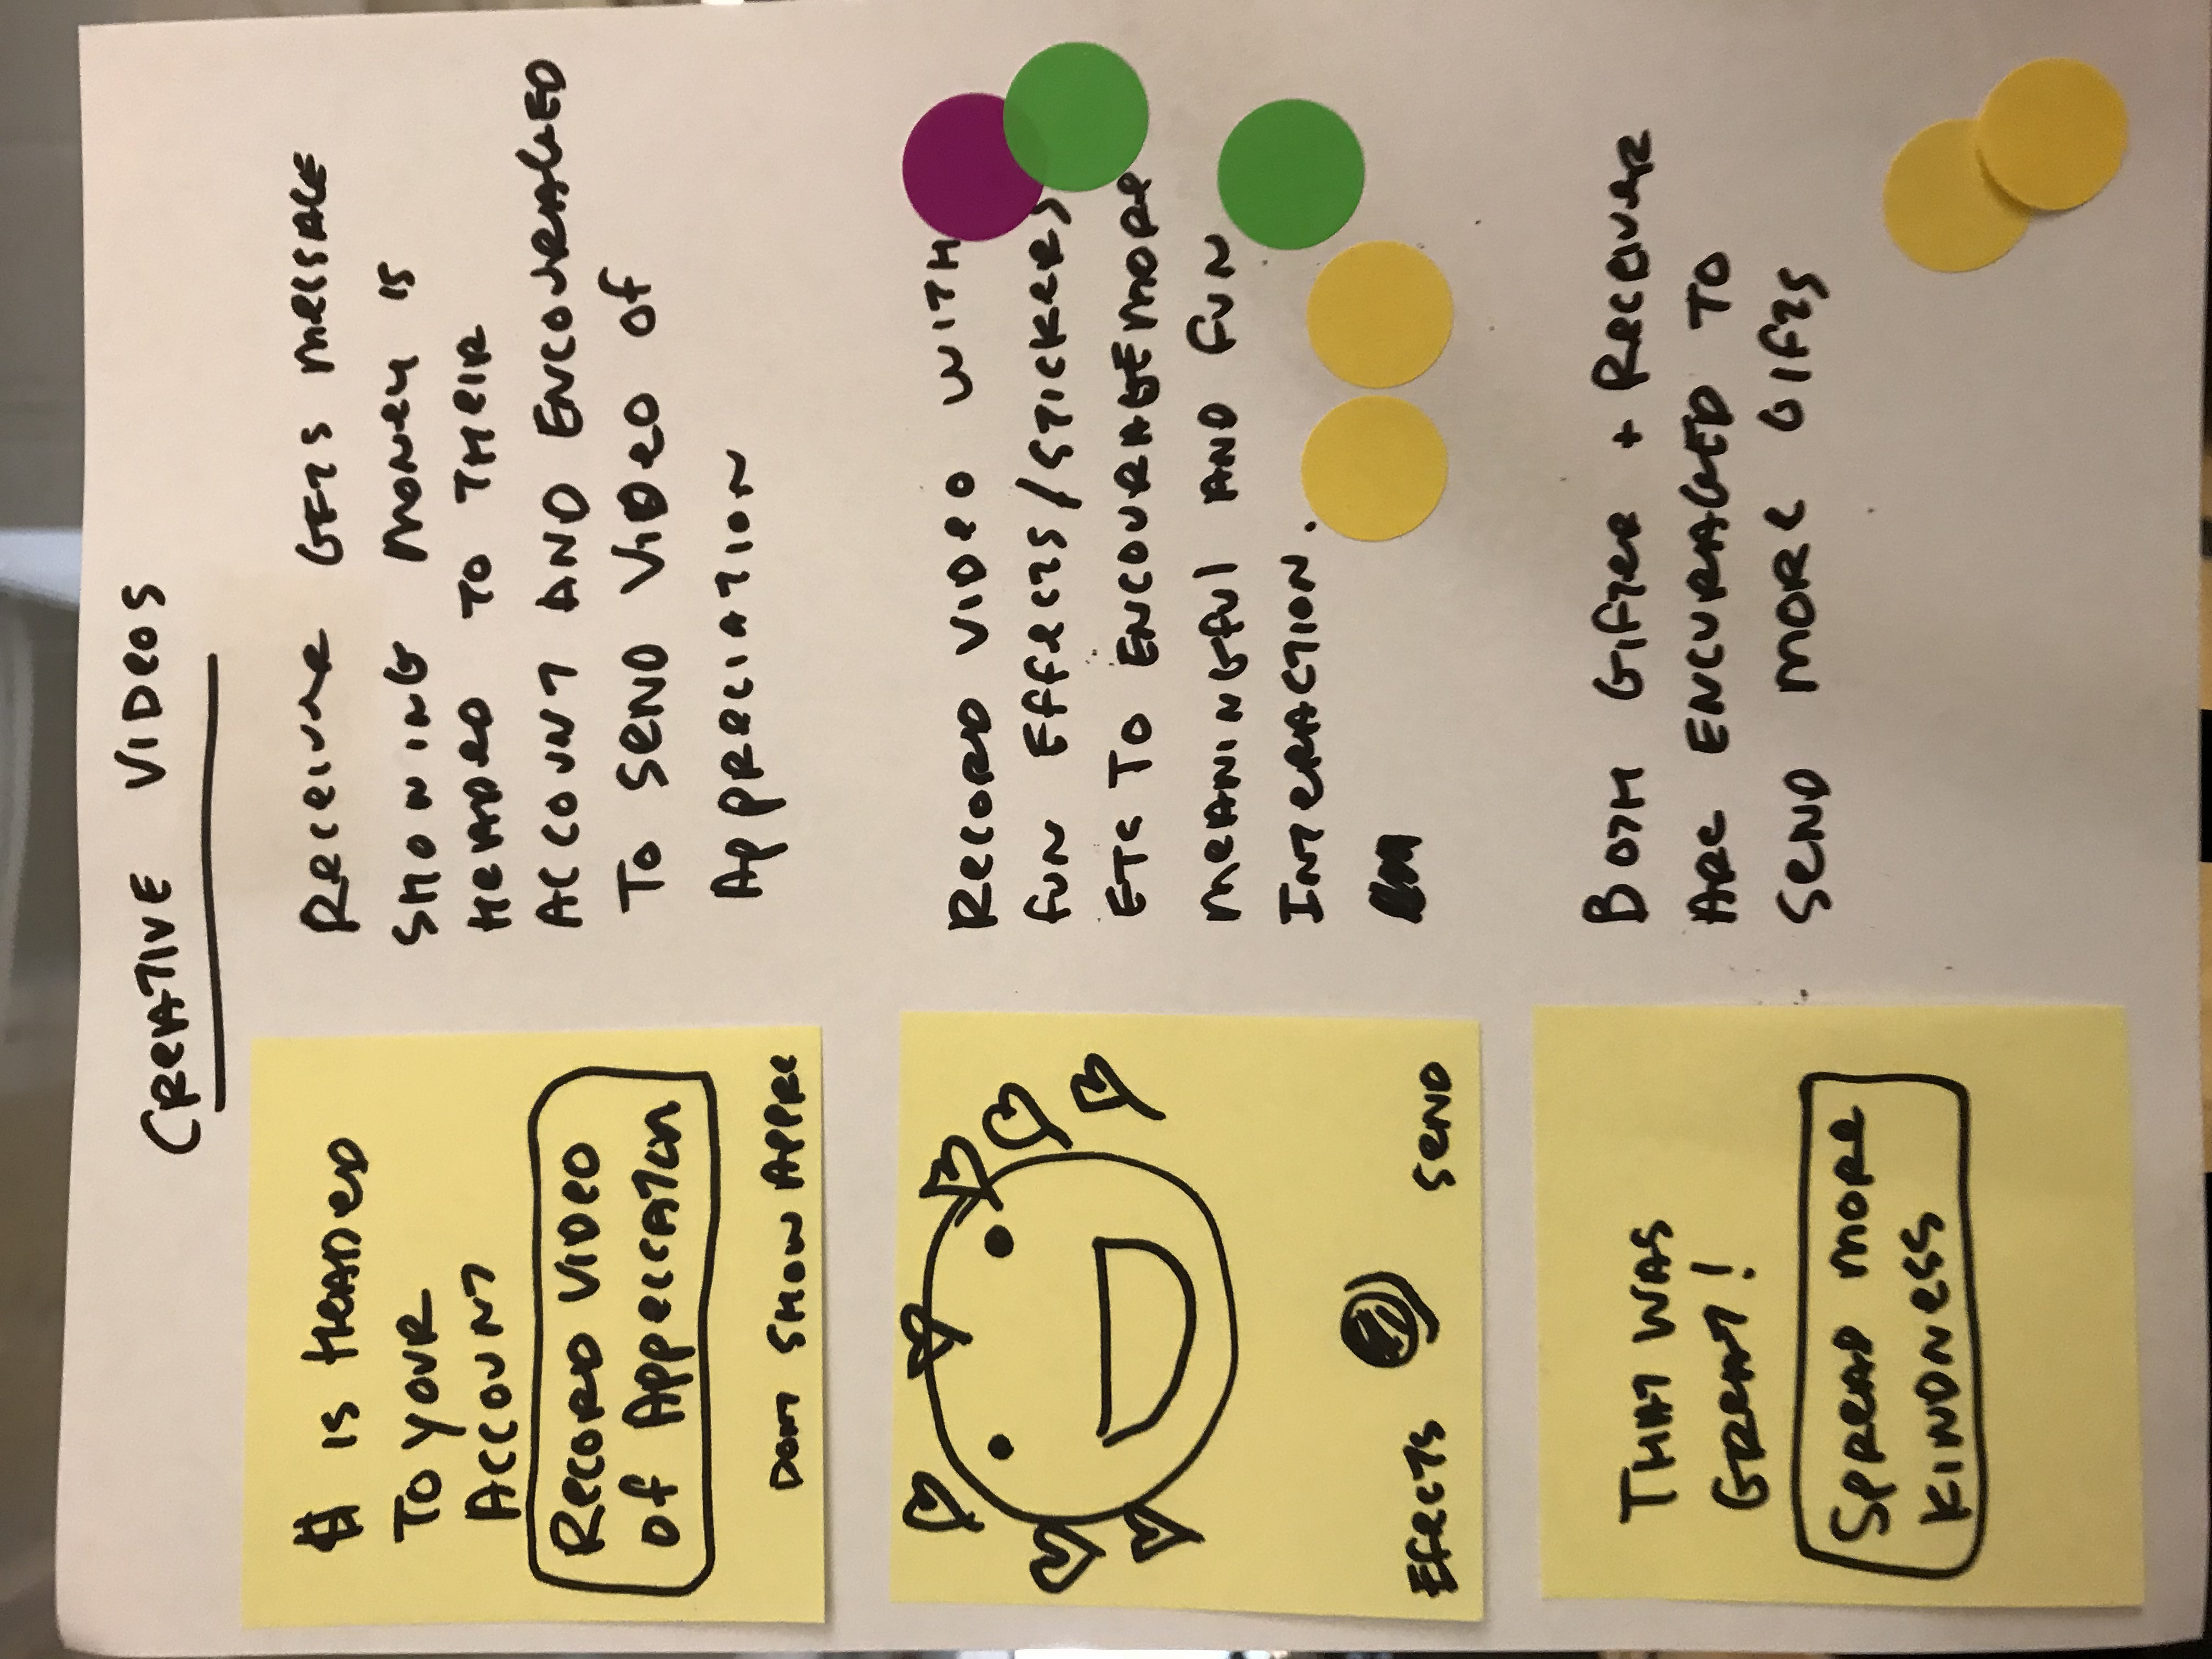 CREATIVE VIDEOS
$ IS HEADED
TO YOUR
ACCOUNT
RECORD VIDEO
OF APPECCATION
DONT SHOW APPRE
RECEIVER GETS MESSAGE
SHOWING MONEY IS
HEADED TO THEIR
ACCOUNT AND ENCOURAGED
TO SEND VIDEO OF
APPRECIATION
EFECTS SEND
RECORD VIDEO WITH
FUN EFFECTS/STICKERS
ETC TO ENCOURAGE MORE
MEANINGFUL AND FUN
INTERACTION.
THAT WAS
GREAT!
SPREAD MORE
KINDNESS
BOTH GIFTER + RECEIVER
ARE ENCURAGED TO
SEND MORE GIFTS